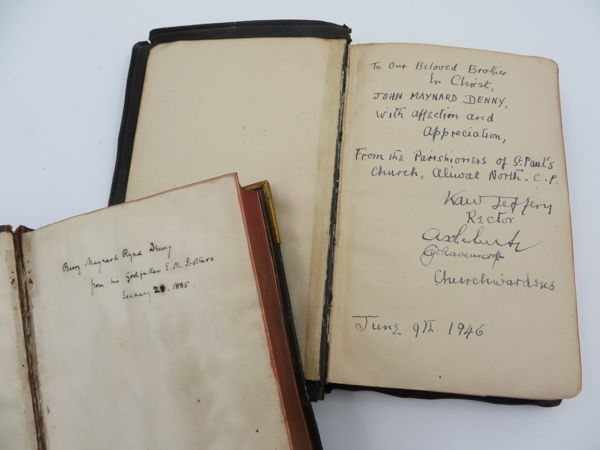 To Our Beloved Brother
In Christ,
JOHN MAYNARD DENNY,
with Affection and
Appreciation,
From the Parishioners of St. Paul's
Church, Aliwal North. C.P.
Jeffery
Rector
Churchwardens
June 9th. 1946
Maynard Denny
from his Godfather E. M.
January 1885.